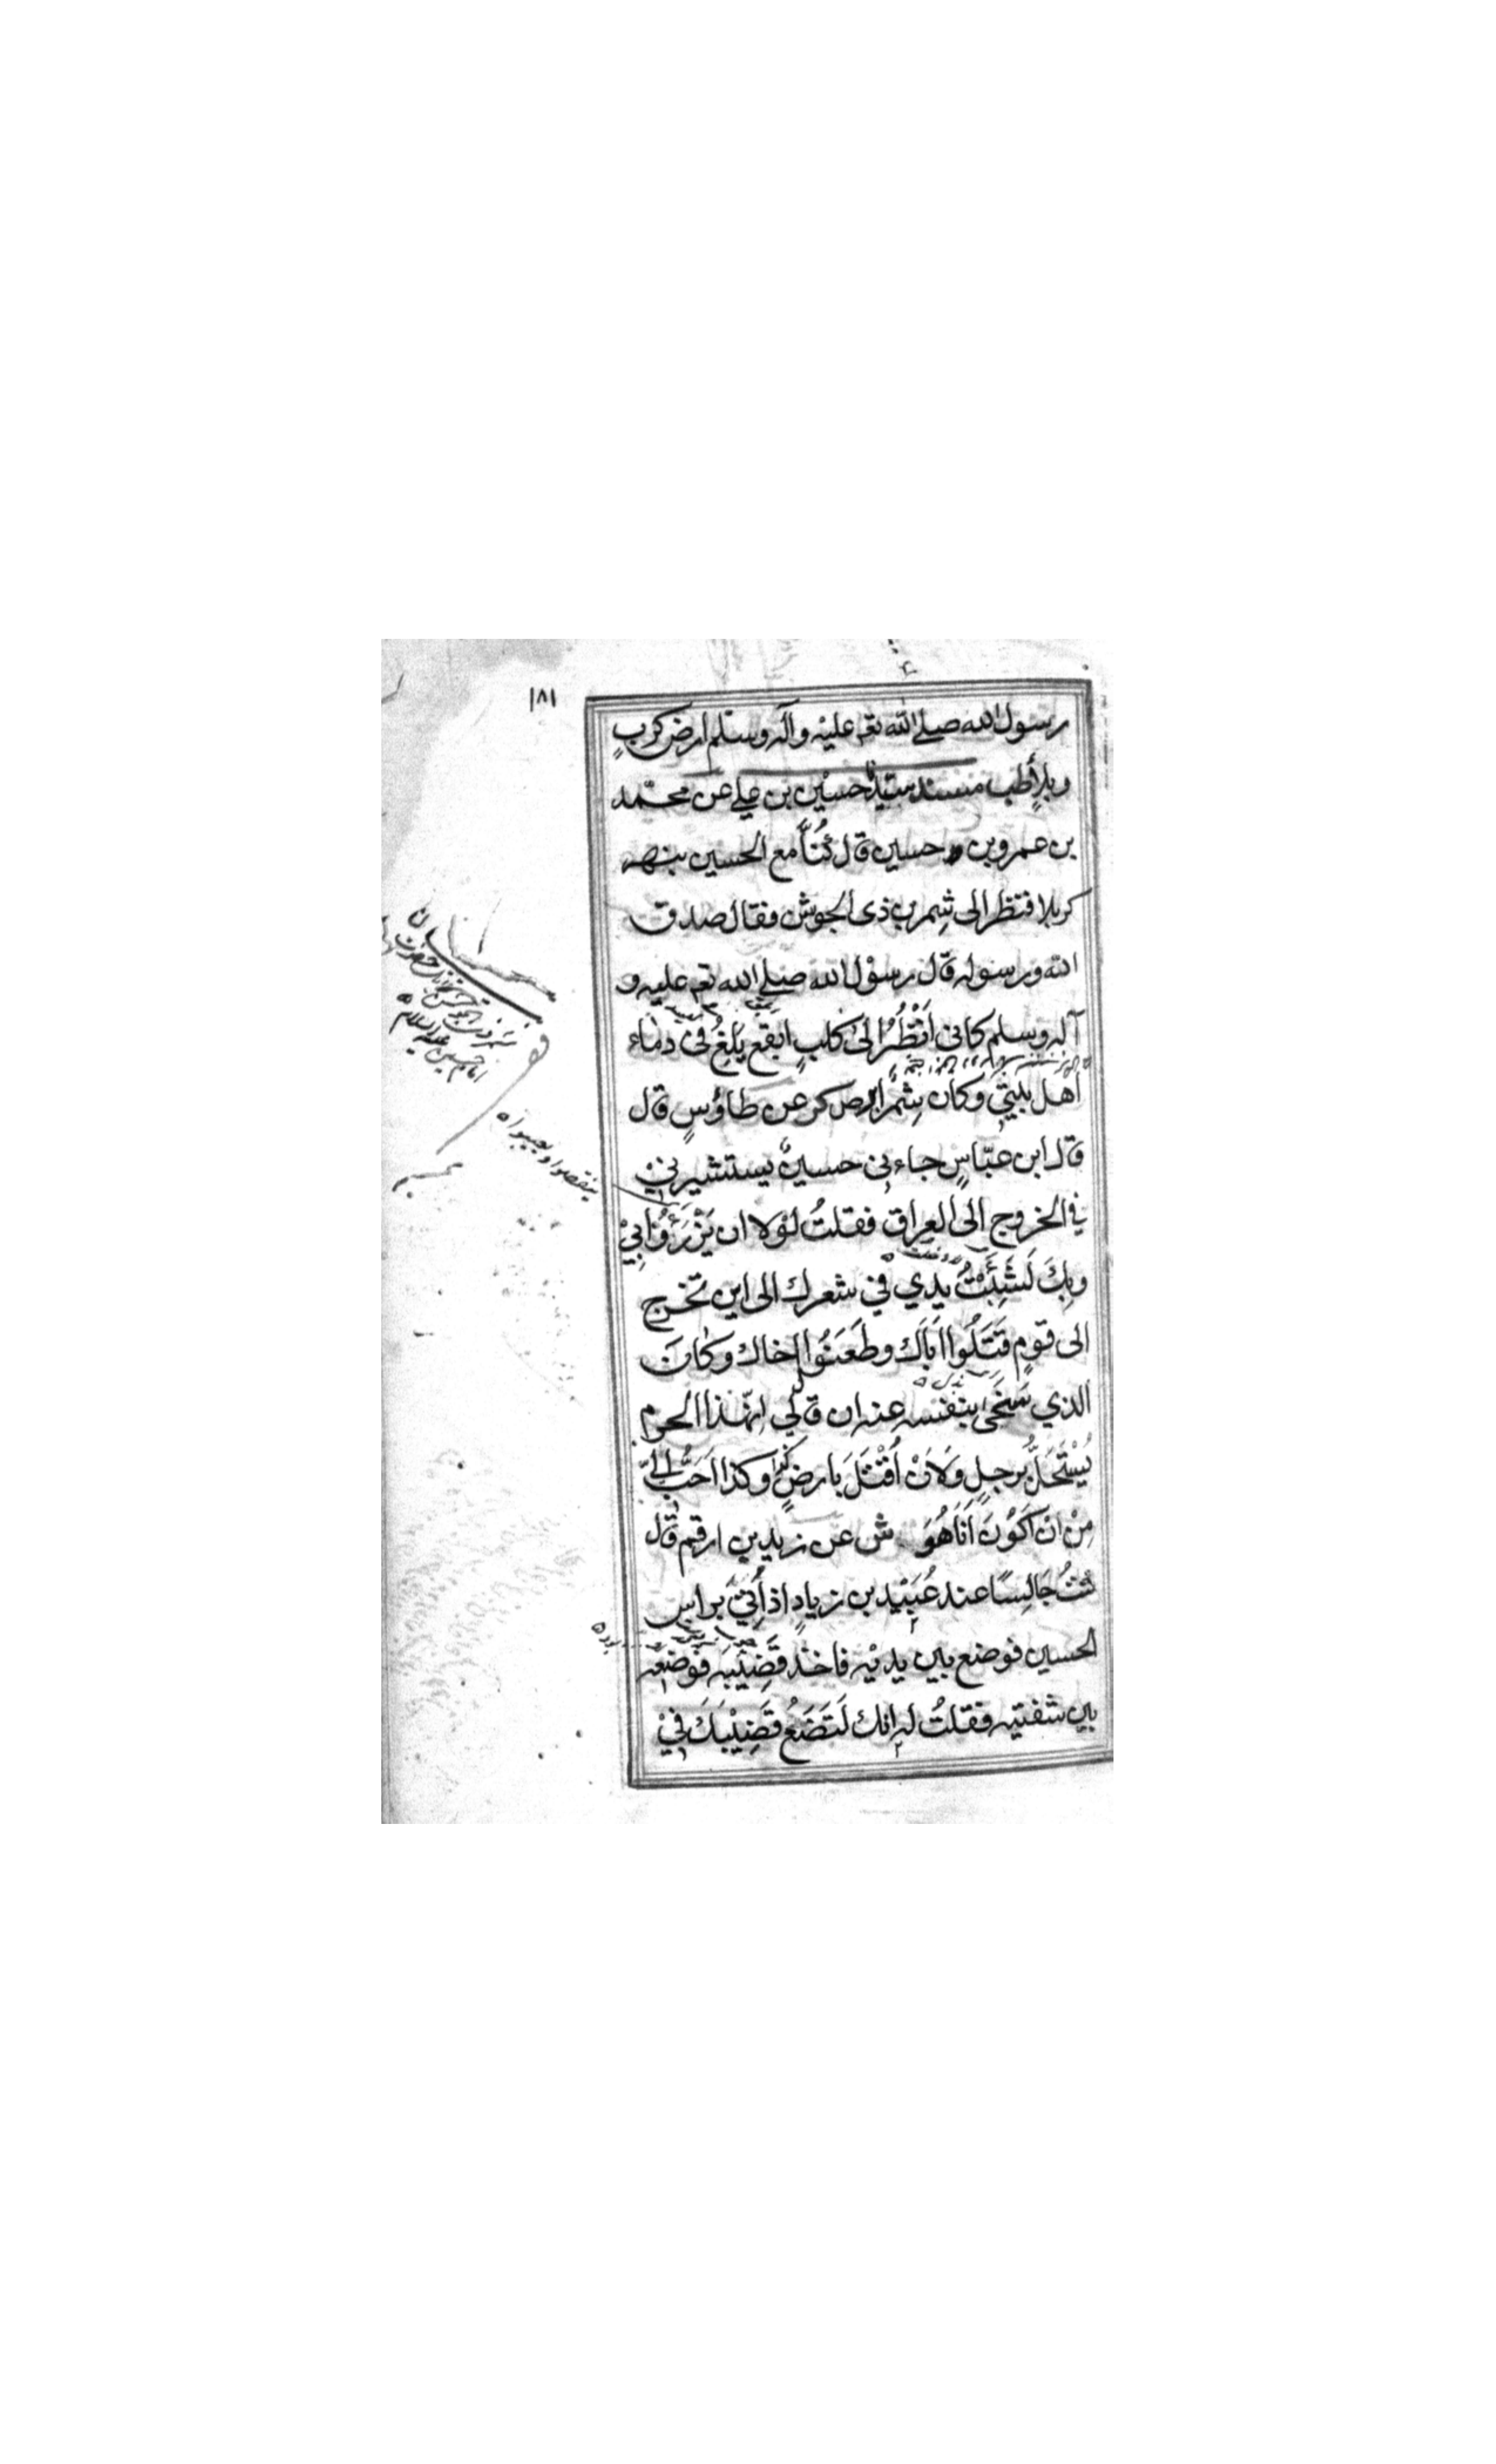 ١٨١
رسول الله صلے الله تعم عليه وآله وسلم ارض كربٍ
وبلاٍ طب مسند سيدنا حسين بن علے عن محمّد
بن عمرو بن حسين قال كُنَّا مع الحسين بنهر
كربلا فنظر الى شِمر بن ذى الجوشن فقال صدق
الله ورسوله قال رسوْل الله صلے الله تعم عليه و
آله وسلم كانى اَنْظُرُ الىٰ كلبٍ ابقع يَلِغُ فى دماء
اهل بيتي وكان شِمْر ابرص كر عن طاؤسٍ قال
قال ابن عبّاسٍ جاء نى حسينٌ يستشيرنيْ
في الخروج الى العِراق فقلتُ لوْلا ان يَزْرَؤُا بِيْ
وبِكَ لَشَبَّثْتُ يدِي في شعرك الى اين تخرج
الى قومٍ قَتَلُوا اَبَاكَ وطَعَنُوا اخاك وكانَ
الذي سَخىٰ بنفسه عنه ان قال لي اِنّ هٰذا الحرم
يُسْتَحَلُّ برجلٍ وَلَاَنْ اُقْتَلَ بارضِ كذا وكذا اَحَبُّ اِلَيّ
مِنْ انْ اَكُوْنَ اَنَا هُوَ ش عن زيد بن ارقم قال
كنتُ جَالِسًا عند عُبَيْد بن زيادٍ اذ اُتِيَ براس
الحسين فوضع بين يديْه فاخذ قَضِيْبَه فوَضعه
بين شفتيه فقلتُ له انك لَتَضَعُ قَضِيْبَكَ فِيْ
شمر ذى الجوشن
امام حسين عليه السلام
ينقصوا ويعيبوا